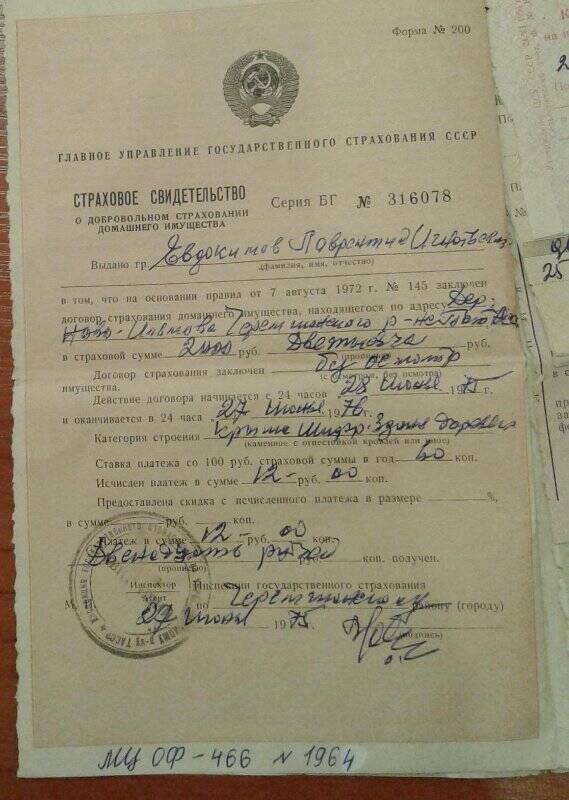 Форма № 200
ГЛАВНОЕ УПРАВЛЕНИЕ ГОСУДАРСТВЕННОГО СТРАХОВАНИЯ СССР
СТРАХОВОЕ СВИДЕТЕЛЬСТВО
О ДОБРОВОЛЬНОМ СТРАХОВАНИИ
ДОМАШНЕГО ИМУЩЕСТВА
Серия БГ № 316078
Выдано гр. Евдокимов Лаврентий
(фамилия, имя, отчество)
в том, что на основании правил от 7 августа 1972 г. № 145 заключен
договор страхования домашнего имущества, находящегося по адресу Дер.
р-на
в страховой сумме 2000 руб. руб.
(прописью)
Договор страхования заключен без осмотр
(с осмотром, без осмотра)
имущества.
Действие договора начинается с 24 часов 28 июня 1975 г.
и оканчивается в 24 часа 27 июня 1976 г.
Категория строения крыша шифер здание
(каменное с огнестойкой кровлей или иное)
Ставка платежа со 100 руб. страховой суммы в год 60 коп.
Исчислен платеж в сумме 12 - руб. 00 коп.
Предоставлена скидка с исчисленного платежа в размере %,
в сумме руб. коп.
Платеж в сумме 12 - руб. 00 коп.
Двенадцать рублей коп. получен.
(прописью)
Инспектор
Агент
Инспекции государственного страхования
М. П.
по району (городу)
27 июня 1975
(подпись)
МЦ ОФ-466 N 1964